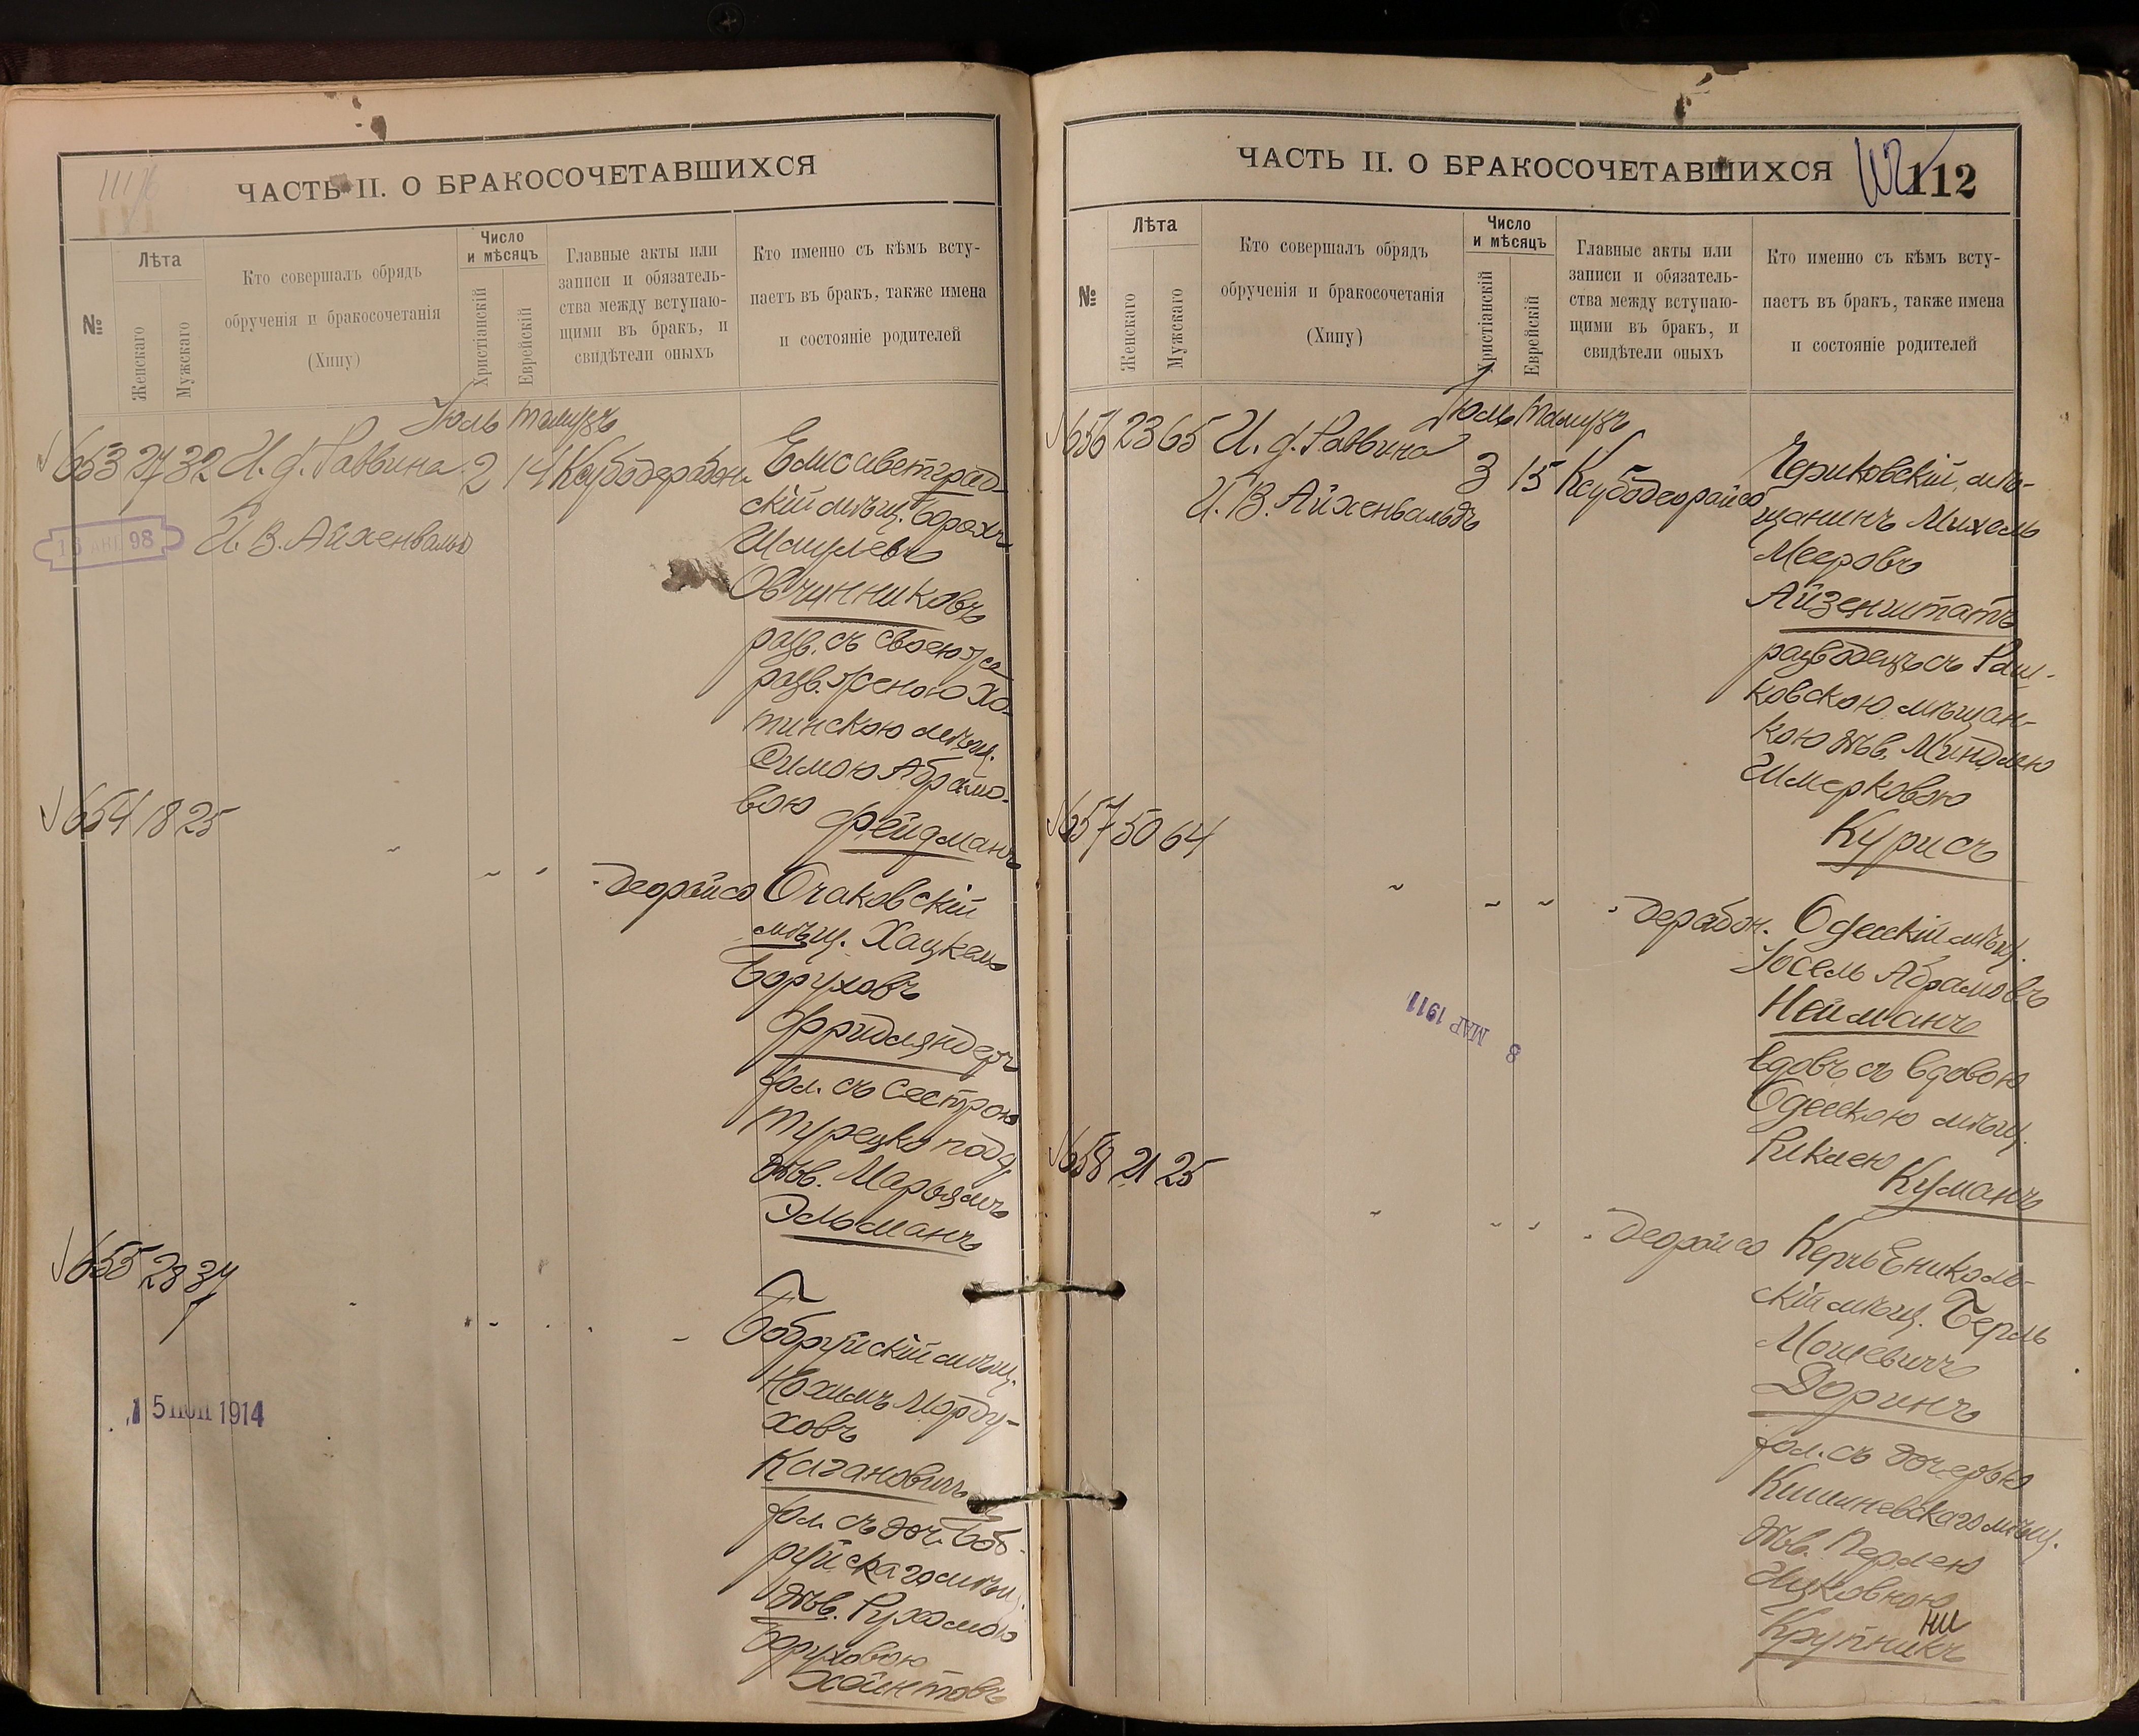 ЧАСТЬ II. О БРАКОСОЧЕТАВШИХСЯ
№
Лѣта
Женскаго
Мужскаго
Кто совершалъ обрядъ
обрученія и бракосочетанія
(Хипу)
Число
и мѣсяцъ
Христіанскій
Еврейскій
Главные акты или
записи и обязатель-
ства между вступаю-
щими въ бракъ, и
свидѣтели оныхъ
Кто именно съ кѣмъ всту-
паетъ въ бракъ, также имена
и состояніе родителей
Іюль тамузъ
653 27 32 И. д. Раввина 2 14
И. В. Айхенвальд
16 АВГ 98
Елисаветград-
скій мѣщ. Борохъ
Шмулевъ
Овчинниковъ
разв. съ своею же
разв. женою Хо-
тинскою мѣщ.
Симою Абрамо-
вою Фейдманъ
654 18 25
деорайсо Очаковскій
мѣщ. Хацкель
Боруховъ
Фридляндеръ
хол. съ сестрою
турецко подд.
дѣв. Марьямъ
Эльманъ
655 28 37
Бобруйскій мѣщ.
Нохимъ Морду-
ховъ
Кагановичъ
хол. съ доч. Боб-
руйскаго мѣщ.
дѣв. Рухомою
Боруховою
Хоинтовъ
15 1914
ЧАСТЬ II. О БРАКОСОЧЕТАВШИХСЯ
112 112
№
Лѣта
Женскаго
Мужскаго
Кто совершалъ обрядъ
обрученія и бракосочетанія
(Хипу)
Число
и мѣсяцъ
Христіанскій
Еврейскій
Главные акты или
записи и обязатель-
ства между вступаю-
щими въ бракъ, и
свидѣтели оныхъ
Кто именно съ кѣмъ всту-
паетъ въ бракъ, также имена
и состояніе родителей
Іюль тамузъ
656 23 65 И. д. Раввина 3 15 Ксубодеорайсо
И. В. Айхенвальдъ
Чериковскій мѣ-
щанинъ Михель
Мееровъ
Айзенштатъ
разводецъ съ Раш-
ковскою мѣщан-
кою дѣв. Миндлею
Шмерковою
Курисъ
657 50 64
дерабон. Одесскій мѣщ.
Іосель Абрамовъ
Нейманъ
вдовъ съ вдовою
Одесскою мѣщ.
Риклею
Куманъ
8 МАР 1911
658 21 25
деорайсо Керчь Ениколь-
скій мѣщ. Берль
Мошевичъ
Доринъ
хол. съ дочерью
Кишиневскаго мѣщ.
дѣв. Перлею
Ицковною
Крупникъ
ни